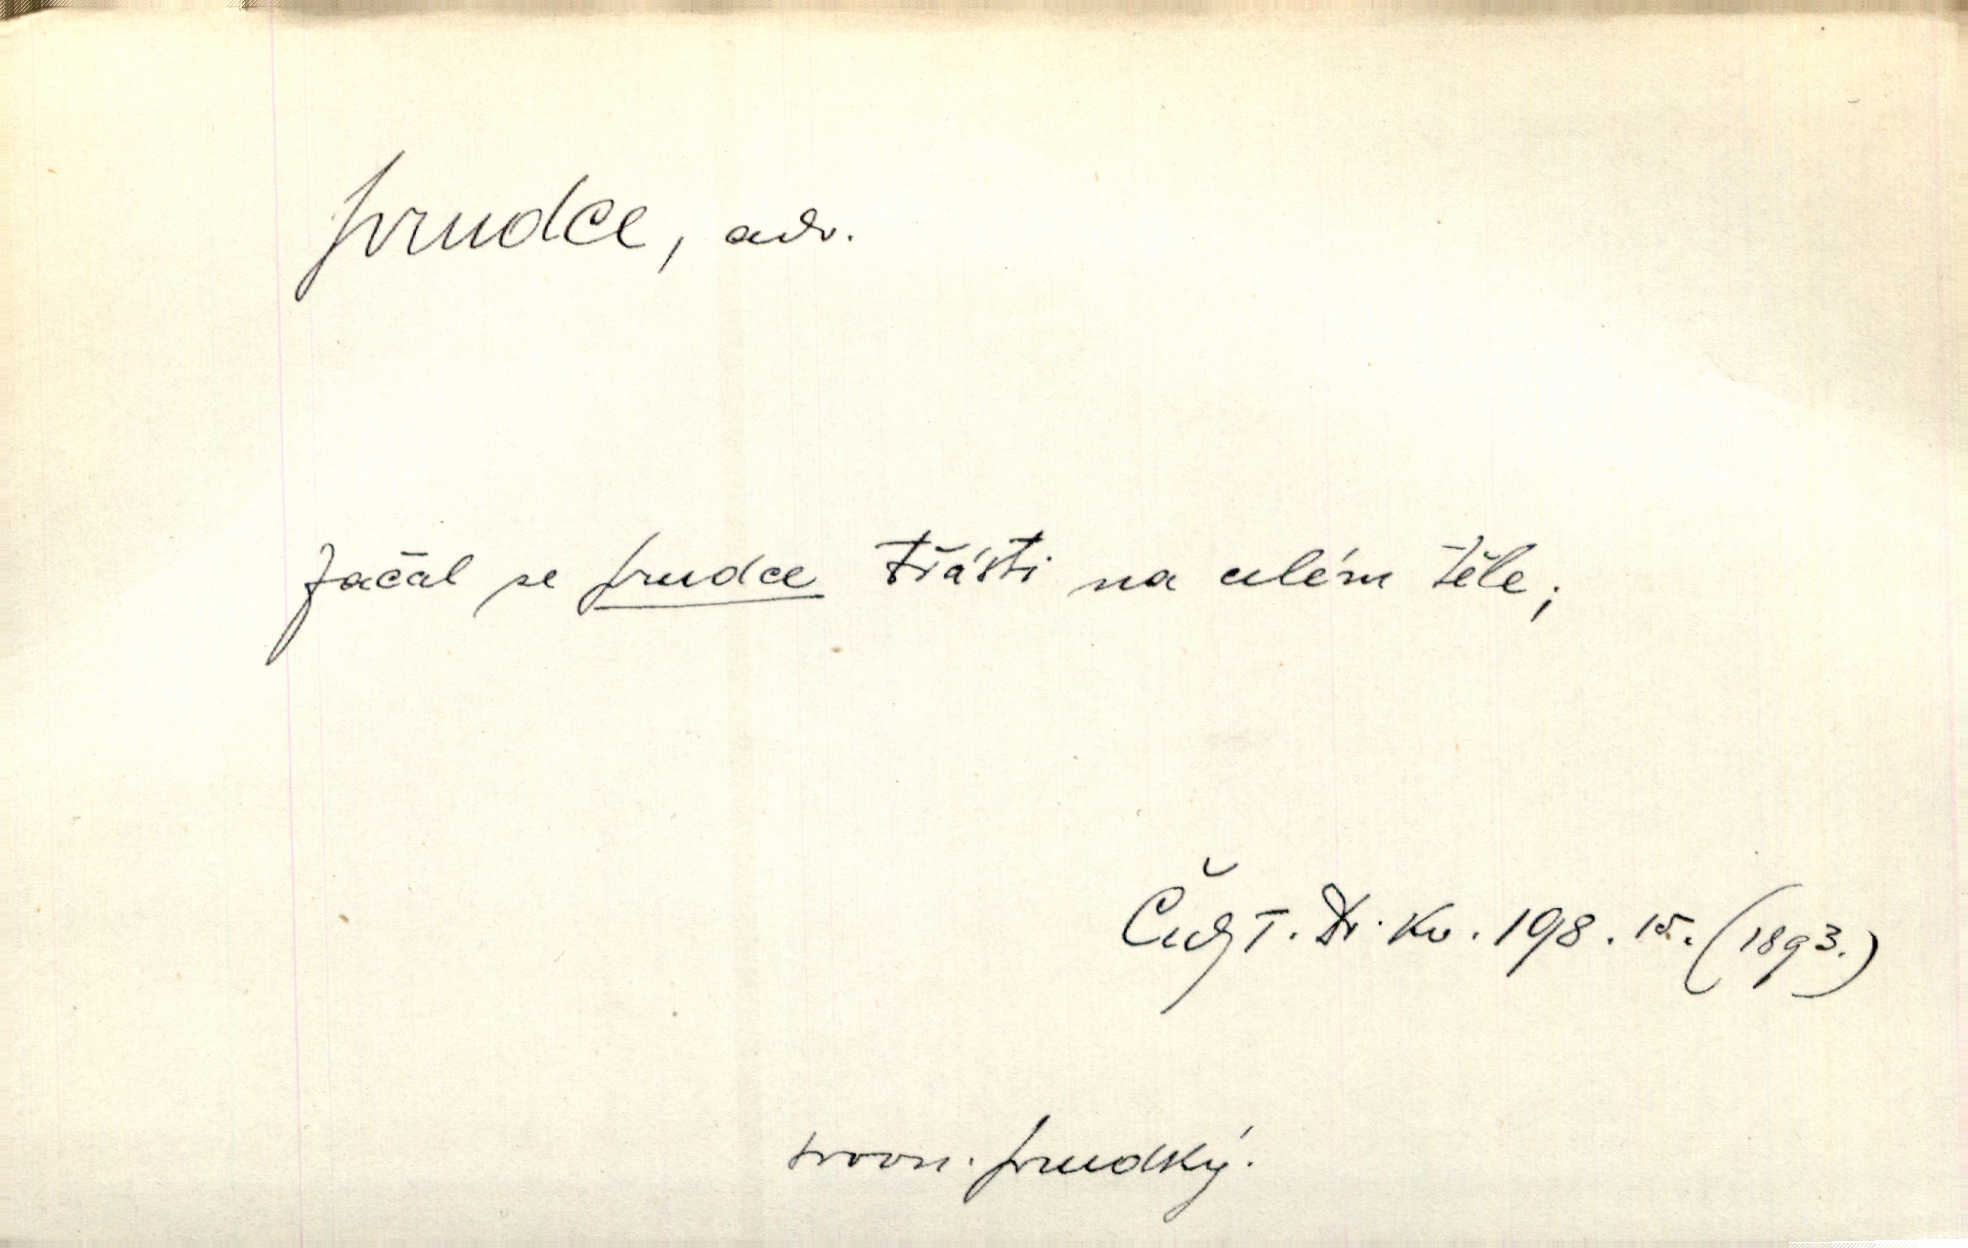 prudce, adv.
začal se prudce třásti na celém těle;
T. Dr. Kv. 198. 15. (1893.)
srovn. prudký.